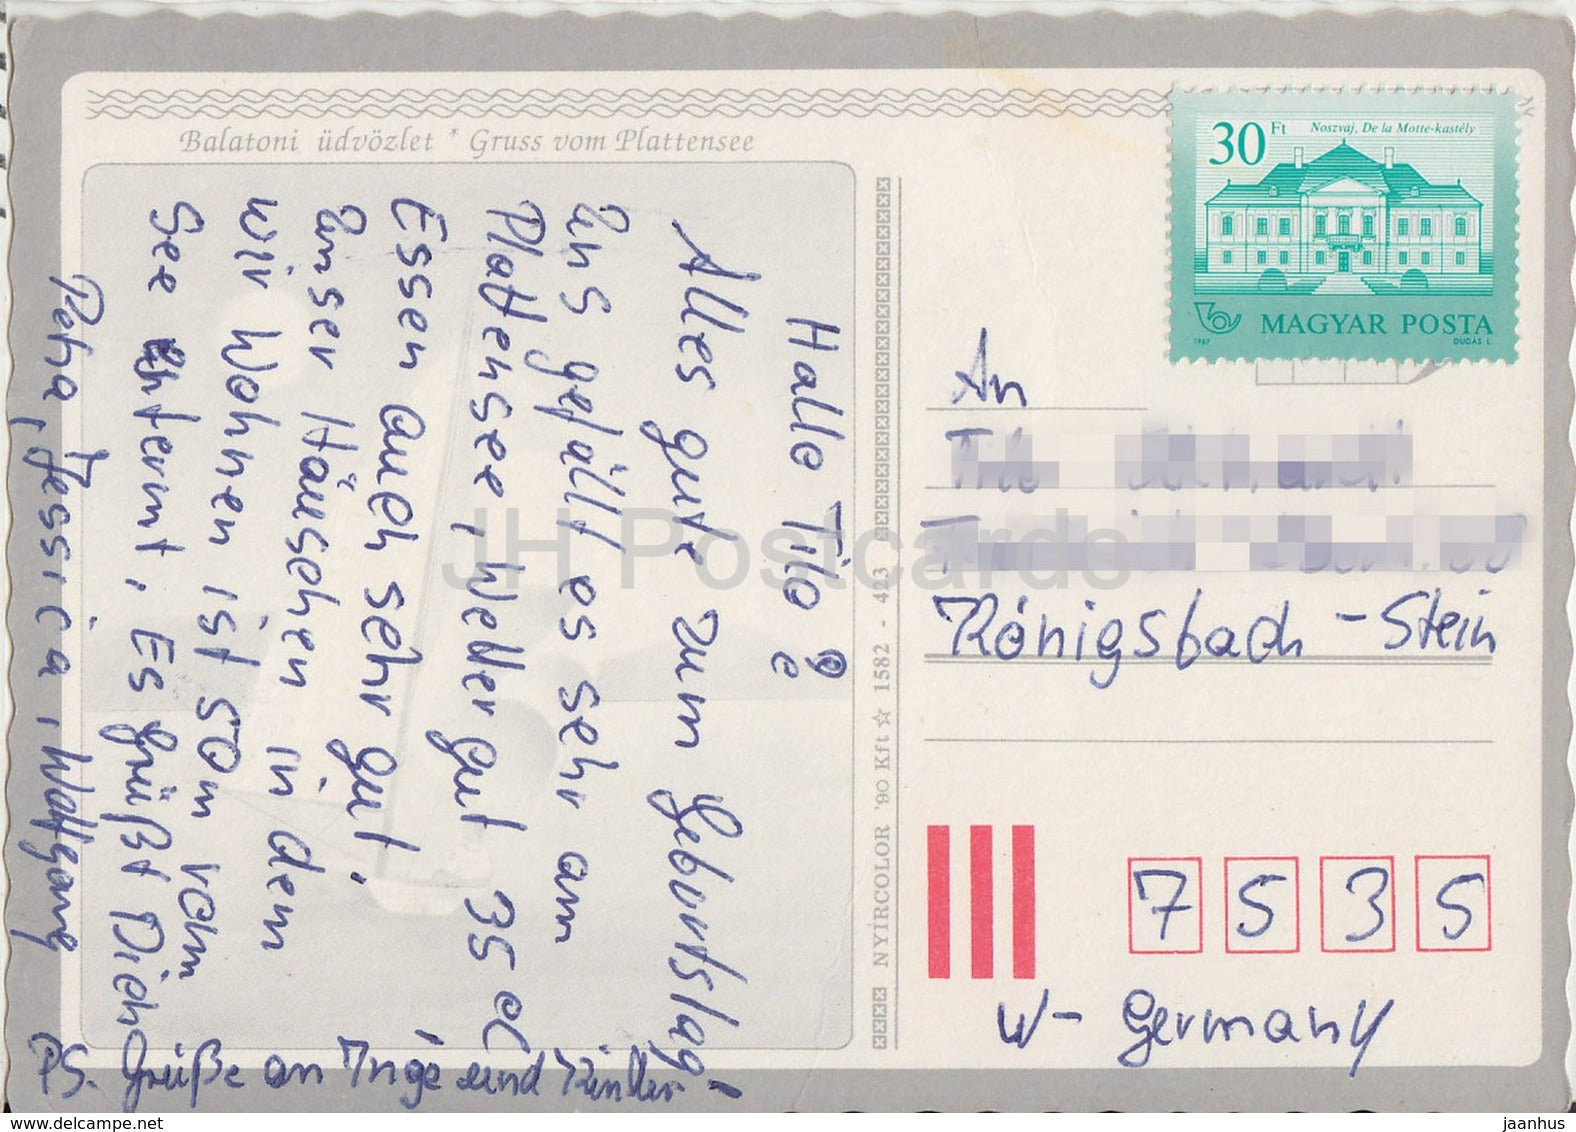 Balatoni üdvözlet * Gruss vom Plattensee
Hallo Tilo!
Alles gute zum Geburtstag
Uns gefällt es sehr am
Plattensee, Wetter gut 35 °C
Essen auch sehr gut!
Unser Häuschen in dem
wir Wohnen ist 50m vom
See entfernt. Es Grüßt Dich
Petra, Jessica, Wolfgang
PS. Grüße an Inge und Kinder
NYÍRCOLOR '90 Kft ☆ 1582 - 423
30 Ft
Noszvaj, De la Motte-kastély
MAGYAR POSTA
1987
DUDÁS L.
An
Königsbach-Stein
7535
W-Germany
JH Postcards
jaanhus.com